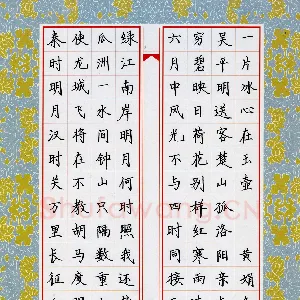 一片冰心在玉壶 黄娟
吴平明送客楚山孤洛阳亲
穷碧映日荷花别样红寒雨
六月中风光不与四时同接
绿江南岸明月何时照我还
瓜洲一水间钟山只隔数重
使龙城飞将在不教胡马度
秦时明月汉时关万里长征
Shufawang.CN